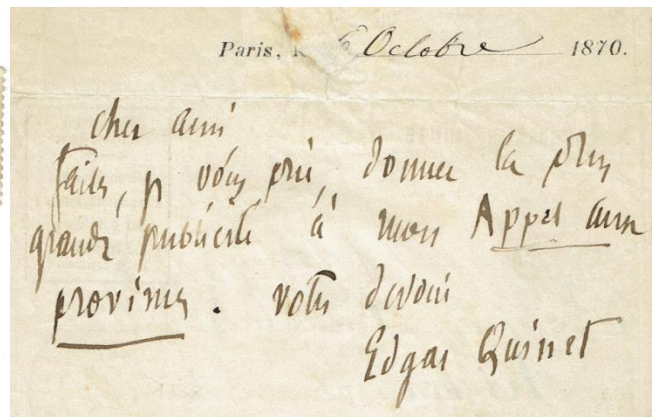 Paris, le 6 Octobre 1870.
cher ami
faites, je vous prie, donner la plus
grande publicité à mon Appel aux
provinces. votre dévoué
Edgar Quinet